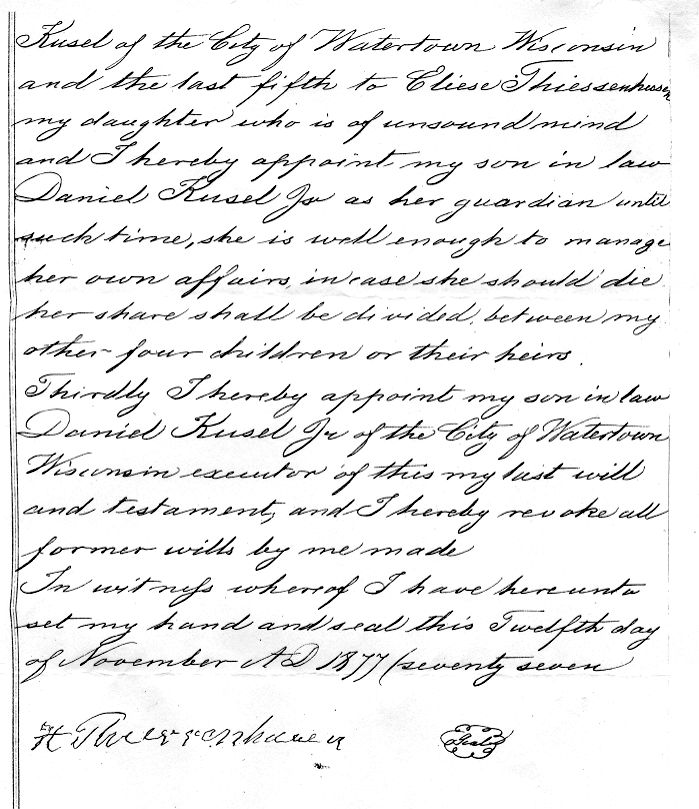 Kusel of the City of Watertown Wisconsin
and the last fifth to Eliese Thiessenhusen
my daughter who is of unsound mind
and I hereby appoint my son in law
Daniel Kusel Jr as her guardian until
such time, she is well enough to manage
her own affairs, in case she should die
her share shall be divided, between my
other four children or their heirs.
Thirdly I hereby appoint my son in law
Daniel Kusel Jr of the City of Watertown
Wisconsin executor of this my last will
and testament, and I hereby revoke all
former wills by me made
In witneſs whereof I have hereunto
set my hand and seal this Twelfth day
of November AD 1877 (seventy seven
H Thiessenhusen Seal